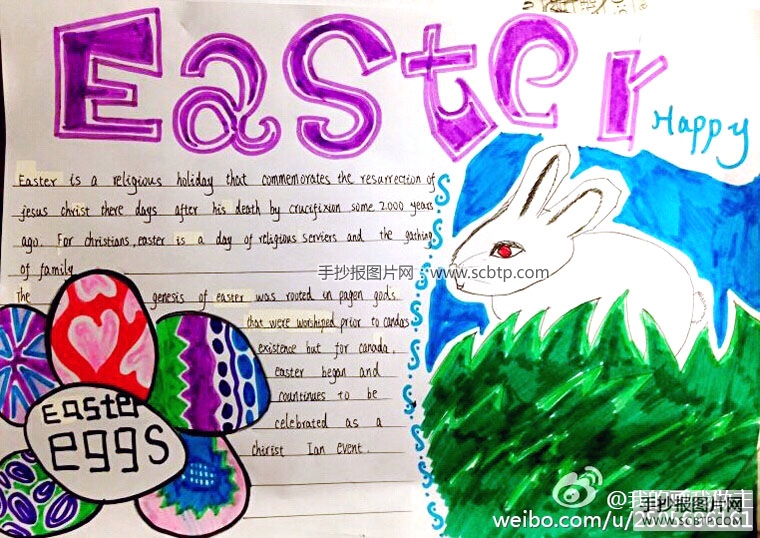 Easter
Happy
Easter is a religious holiday that commemorates the resurrection of
jesus christ there days after his death by crucifixion some 2.000 years
ago. For christians, easter is a day of religious serviers and the gathing
of family
手抄报图片网：www.scbtp.com
The genesis of easter was rooted in pagen gods
that were worshiped prior to candas.
existence but for canada,
easter began and
countinues to be
celebrated as a
chirist Ian event.
Easter
eggs
手抄报图片网
WWW.SCBTP.COM
weibo.com/u/